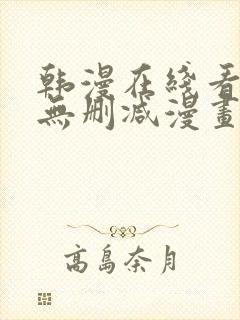 韩漫在线看
無删减漫畫
高島奈月